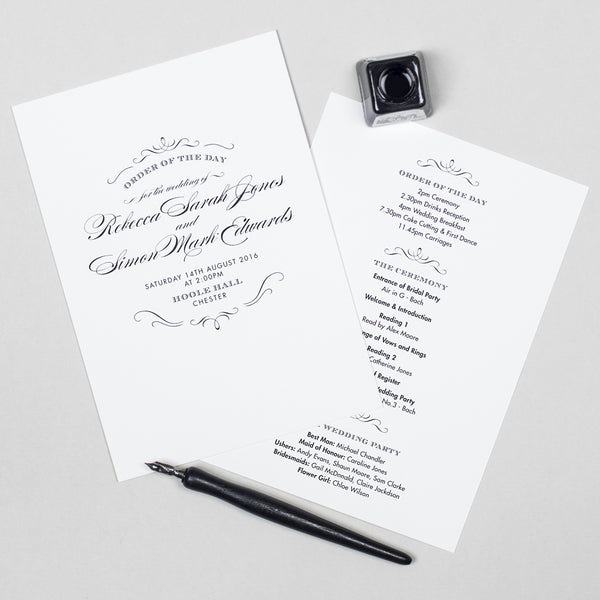 ORDER OF THE DAY
for the wedding of
Rebecca Sarah Jones
and
Simon Mark Edwards
SATURDAY 14TH AUGUST 2016
AT 2:00PM
HOOLE HALL
CHESTER
ORDER OF THE DAY
2pm Ceremony
2.30pm Drinks Reception
4pm Wedding Breakfast
7.30pm Cake Cutting & First Dance
11.45pm Carriages
THE CEREMONY
Entrance of Bridal Party
Air in G - Bach
Welcome & Introduction
Reading 1
Read by Alex Moore
of Vows and Rings
Reading 2
Catherine Jones
Register
Wedding Party
No.3 - Bach
WEDDING PARTY
Best Man: Michael Chandler
Maid of Honour: Caroline Jones
Ushers: Andy Evans, Shaun Moore, Sam Clarke
Bridesmaids: Gail McDonald, Claire Jackdson
Flower Girl: Chloe Wilson